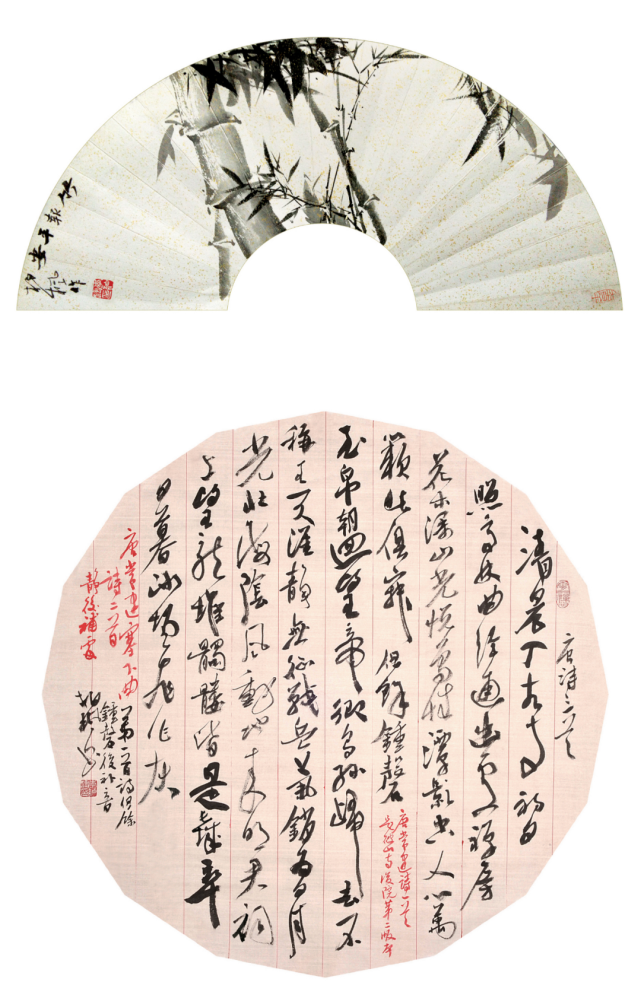 竹報平安
作
唐詩三首
清晨入古寺初日
照高林曲徑通幽處禪房
花木深山光悅鳥性潭影空人心萬
籟此俱寂但餘鐘磬
唐常建詩一首
玉帛朝回望帝鄉烏孫歸去不
稱王天涯靜無征戰兵氣銷為日月
光北海陰風動地來明君祠
上望龍堆髑髏皆是長城卒
日暮沙場飛作灰
唐常建塞下曲
詩二首
靜後補處
第一首詩但餘
鐘磬後補音